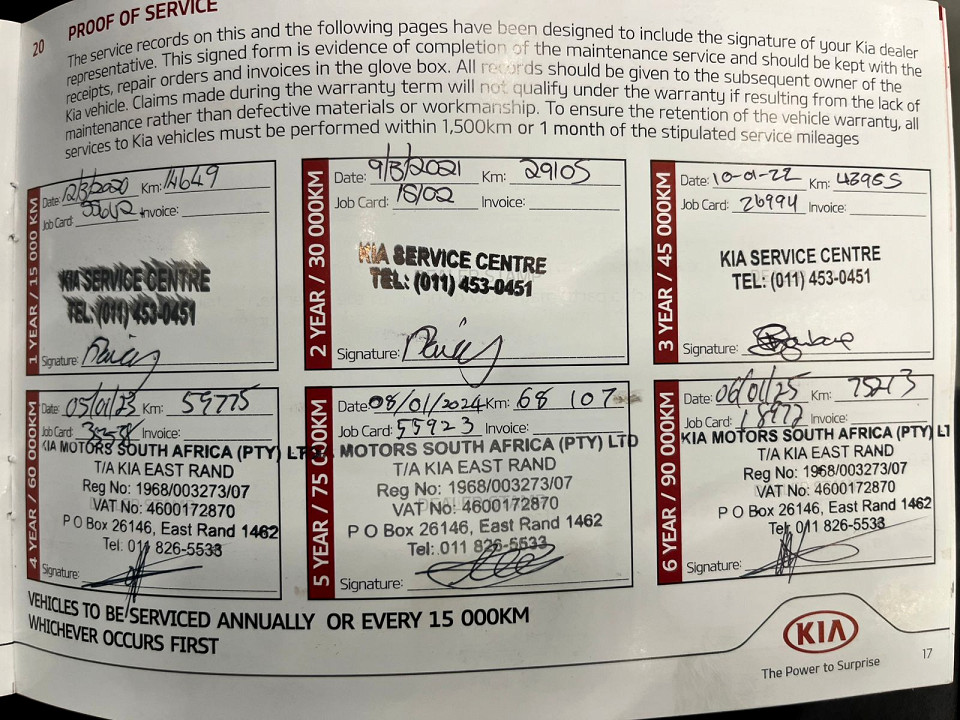 20
PROOF OF SERVICE
The service records on this and the following pages have been designed to include the signature of your Kia dealer
representative. This signed form is evidence of completion of the maintenance service and should be kept with the
receipts, repair orders and invoices in the glove box. All records should be given to the subsequent owner of the
Kia vehicle. Claims made during the warranty term will not qualify under the warranty if resulting from the lack of
maintenance rather than defective materials or workmanship. To ensure the retention of the vehicle warranty, all
services to Kia vehicles must be performed within 1,500km or 1 month of the stipulated service mileages
1 YEAR / 15 000 KM
Date: 12/3/2020 Km: 14649
Job Card: Invoice:
KIA SERVICE CENTRE
TEL: (011) 453-0451
Signature:
2 YEAR / 30 000KM
Date: 9/3/2021 Km: 29105
Job Card: 15/02 Invoice:
KIA SERVICE CENTRE
TEL: (011) 453-0451
Signature:
3 YEAR / 45 000KM
Date: 10-01-22 Km: 43955
Job Card: 26994 Invoice:
KIA SERVICE CENTRE
TEL: (011) 453-0451
Signature:
4 YEAR / 60 000KM
Date: 05/01/23 Km: 59775
Job Card: Invoice:
KIA MOTORS SOUTH AFRICA (PTY) LTD
T/A KIA EAST RAND
Reg No: 1968/003273/07
VAT No: 4600172870
P O Box 26146, East Rand 1462
Tel: 011 826-5533
Signature:
5 YEAR / 75 000KM
Date: 08/01/2024 Km: 68 107
Job Card: 55923 Invoice:
MOTORS SOUTH AFRICA (PTY) LTD
T/A KIA EAST RAND
Reg No: 1968/003273/07
VAT No: 4600172870
P O Box 26146, East Rand 1462
Tel: 011 826-5533
Signature:
6 YEAR / 90 000KM
Date: 06/01/25 Km: 75213
Job Card: 18977 Invoice:
KIA MOTORS SOUTH AFRICA (PTY) LT
T/A KIA EAST RAND
Reg No: 1968/003273/07
VAT No: 4600172870
P O Box 26146, East Rand 1462
Tel: 011 826-5533
Signature:
VEHICLES TO BE SERVICED ANNUALLY OR EVERY 15 000KM
WHICHEVER OCCURS FIRST
KIA
The Power to Surprise
17